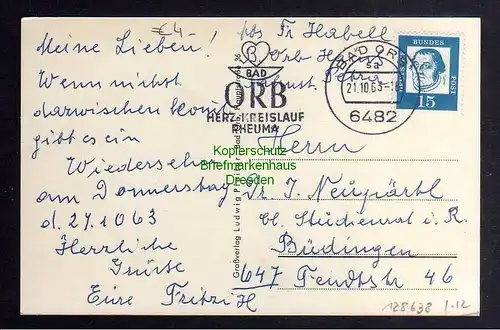 € 4-
Meine Lieben!
Wenn nichts
dazwischen kommt
gibt es ein
Wiedersehen
am Donnerstag
d. 24.10.63
Herzliche
Grüße
Eure Fritzi H
Großverlag Ludwig
Fr. Habell
Orb
BAD
ORB
HERZ-KREISLAUF
RHEUMA
BAD ORB
21.10.63-1
6482
DEUTSCHE
BUNDES
POST
15
Kopierschutz
Briefmarkenhaus
Dresden
Herrn
Dr. J. Neupärtl
Studienrat i. R.
Büdingen
647 Fendtstr 46
128638 1.12